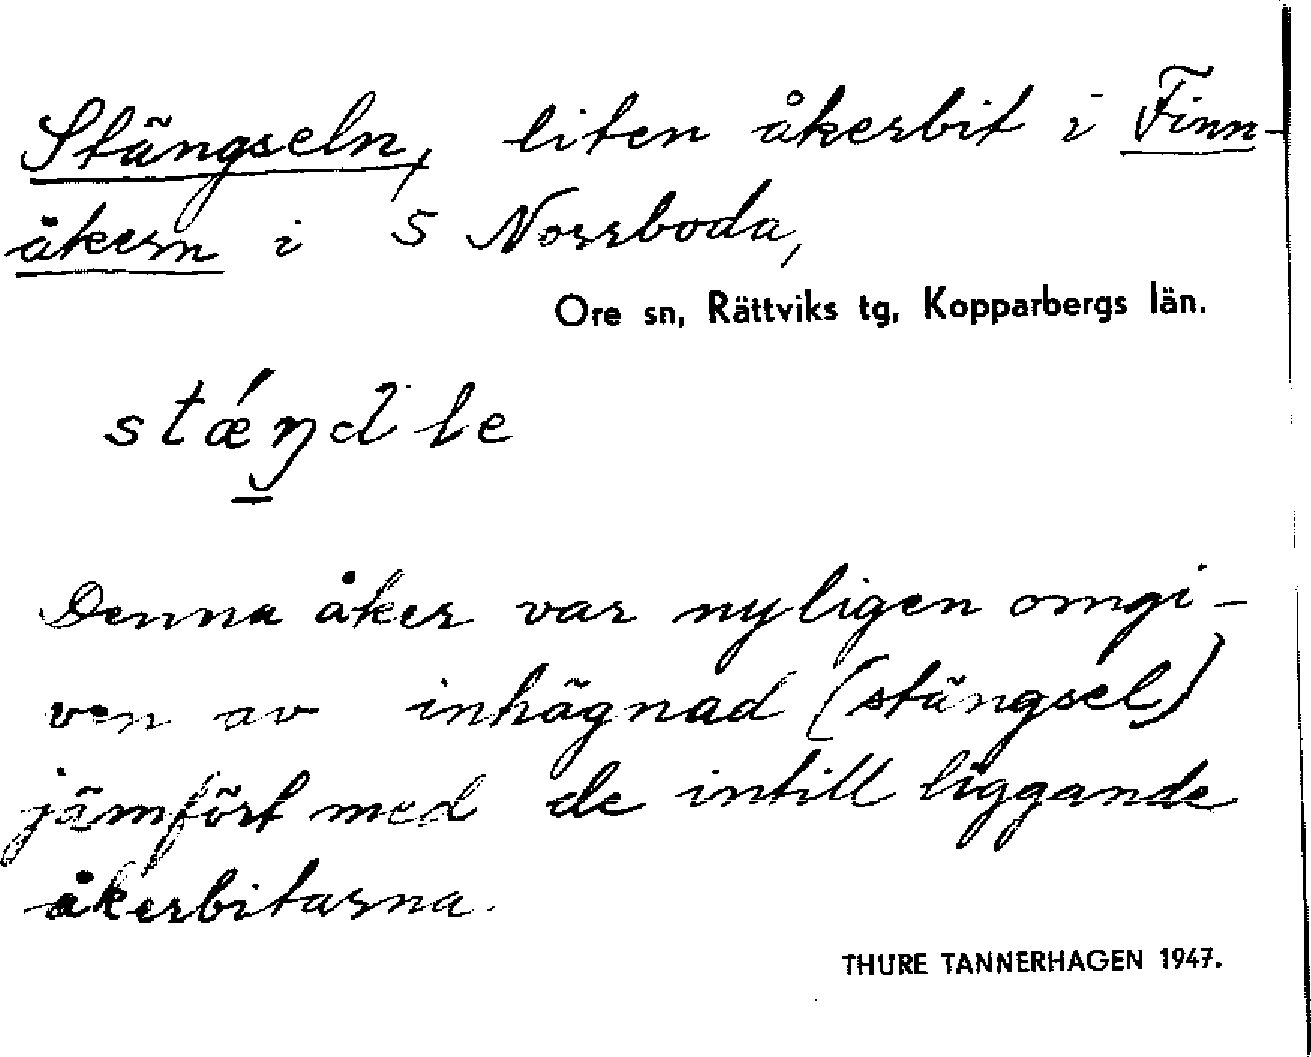 Stängseln, liten åkerbit i Finn-
åkern i S Norrboda,
Ore sn, Rättviks tg, Kopparbergs län.
Denna åker var nyligen omgi-
ven av inhägnad (stängsel)
jämfört med de intill liggande
åkerbitarna.
THURE TANNERHAGEN 1947.